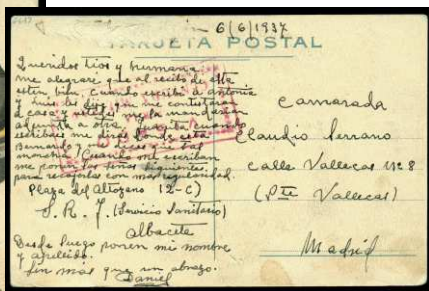 6/6/1937
TARJETA POSTAL
Queridos tios y hermana
me alegraré que al recibo de esta
esten bien. Cuando escribi a Antonia
y Luis les dije que me contestaran
a casa y ustedes me la mandasen
adjunta a otra. cuando
escriban me diran donde esta
Bernardo y me dices que tal
marcha. Cuando me escriban
me pornan las señas siguientes
para recibirlas con mas regularidad.
Plaza del Altozano 12-C)
S. R. I. (Servicio Sanitario)
Albacete
Desde luego ponen mi nombre
y apellido.
Sin mas que un abrazo.
Daniel
Camarada
Claudio Serrano
calle Vallecas nº 8
(Pte Vallecas)
Madrid